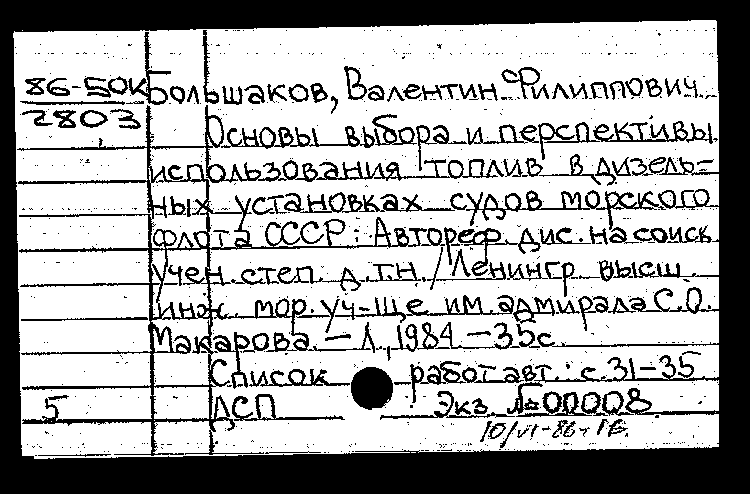 86-50К Большаков, Валентин Филиппович
2803 Основы выбора и перспективы
использования топлив в дизель=
ных установках судов морского
флота СССР: Автореф. дис. на соиск.
учен. степ. д.т.н. / Ленингр. высш.
инж. мор. уч-ще им. адмирала С.О.
Макарова. – Л., 1984. – 35с.
Список работ авт.: с. 31-35
5 ДСП Экз. №00008
10/VI-86г